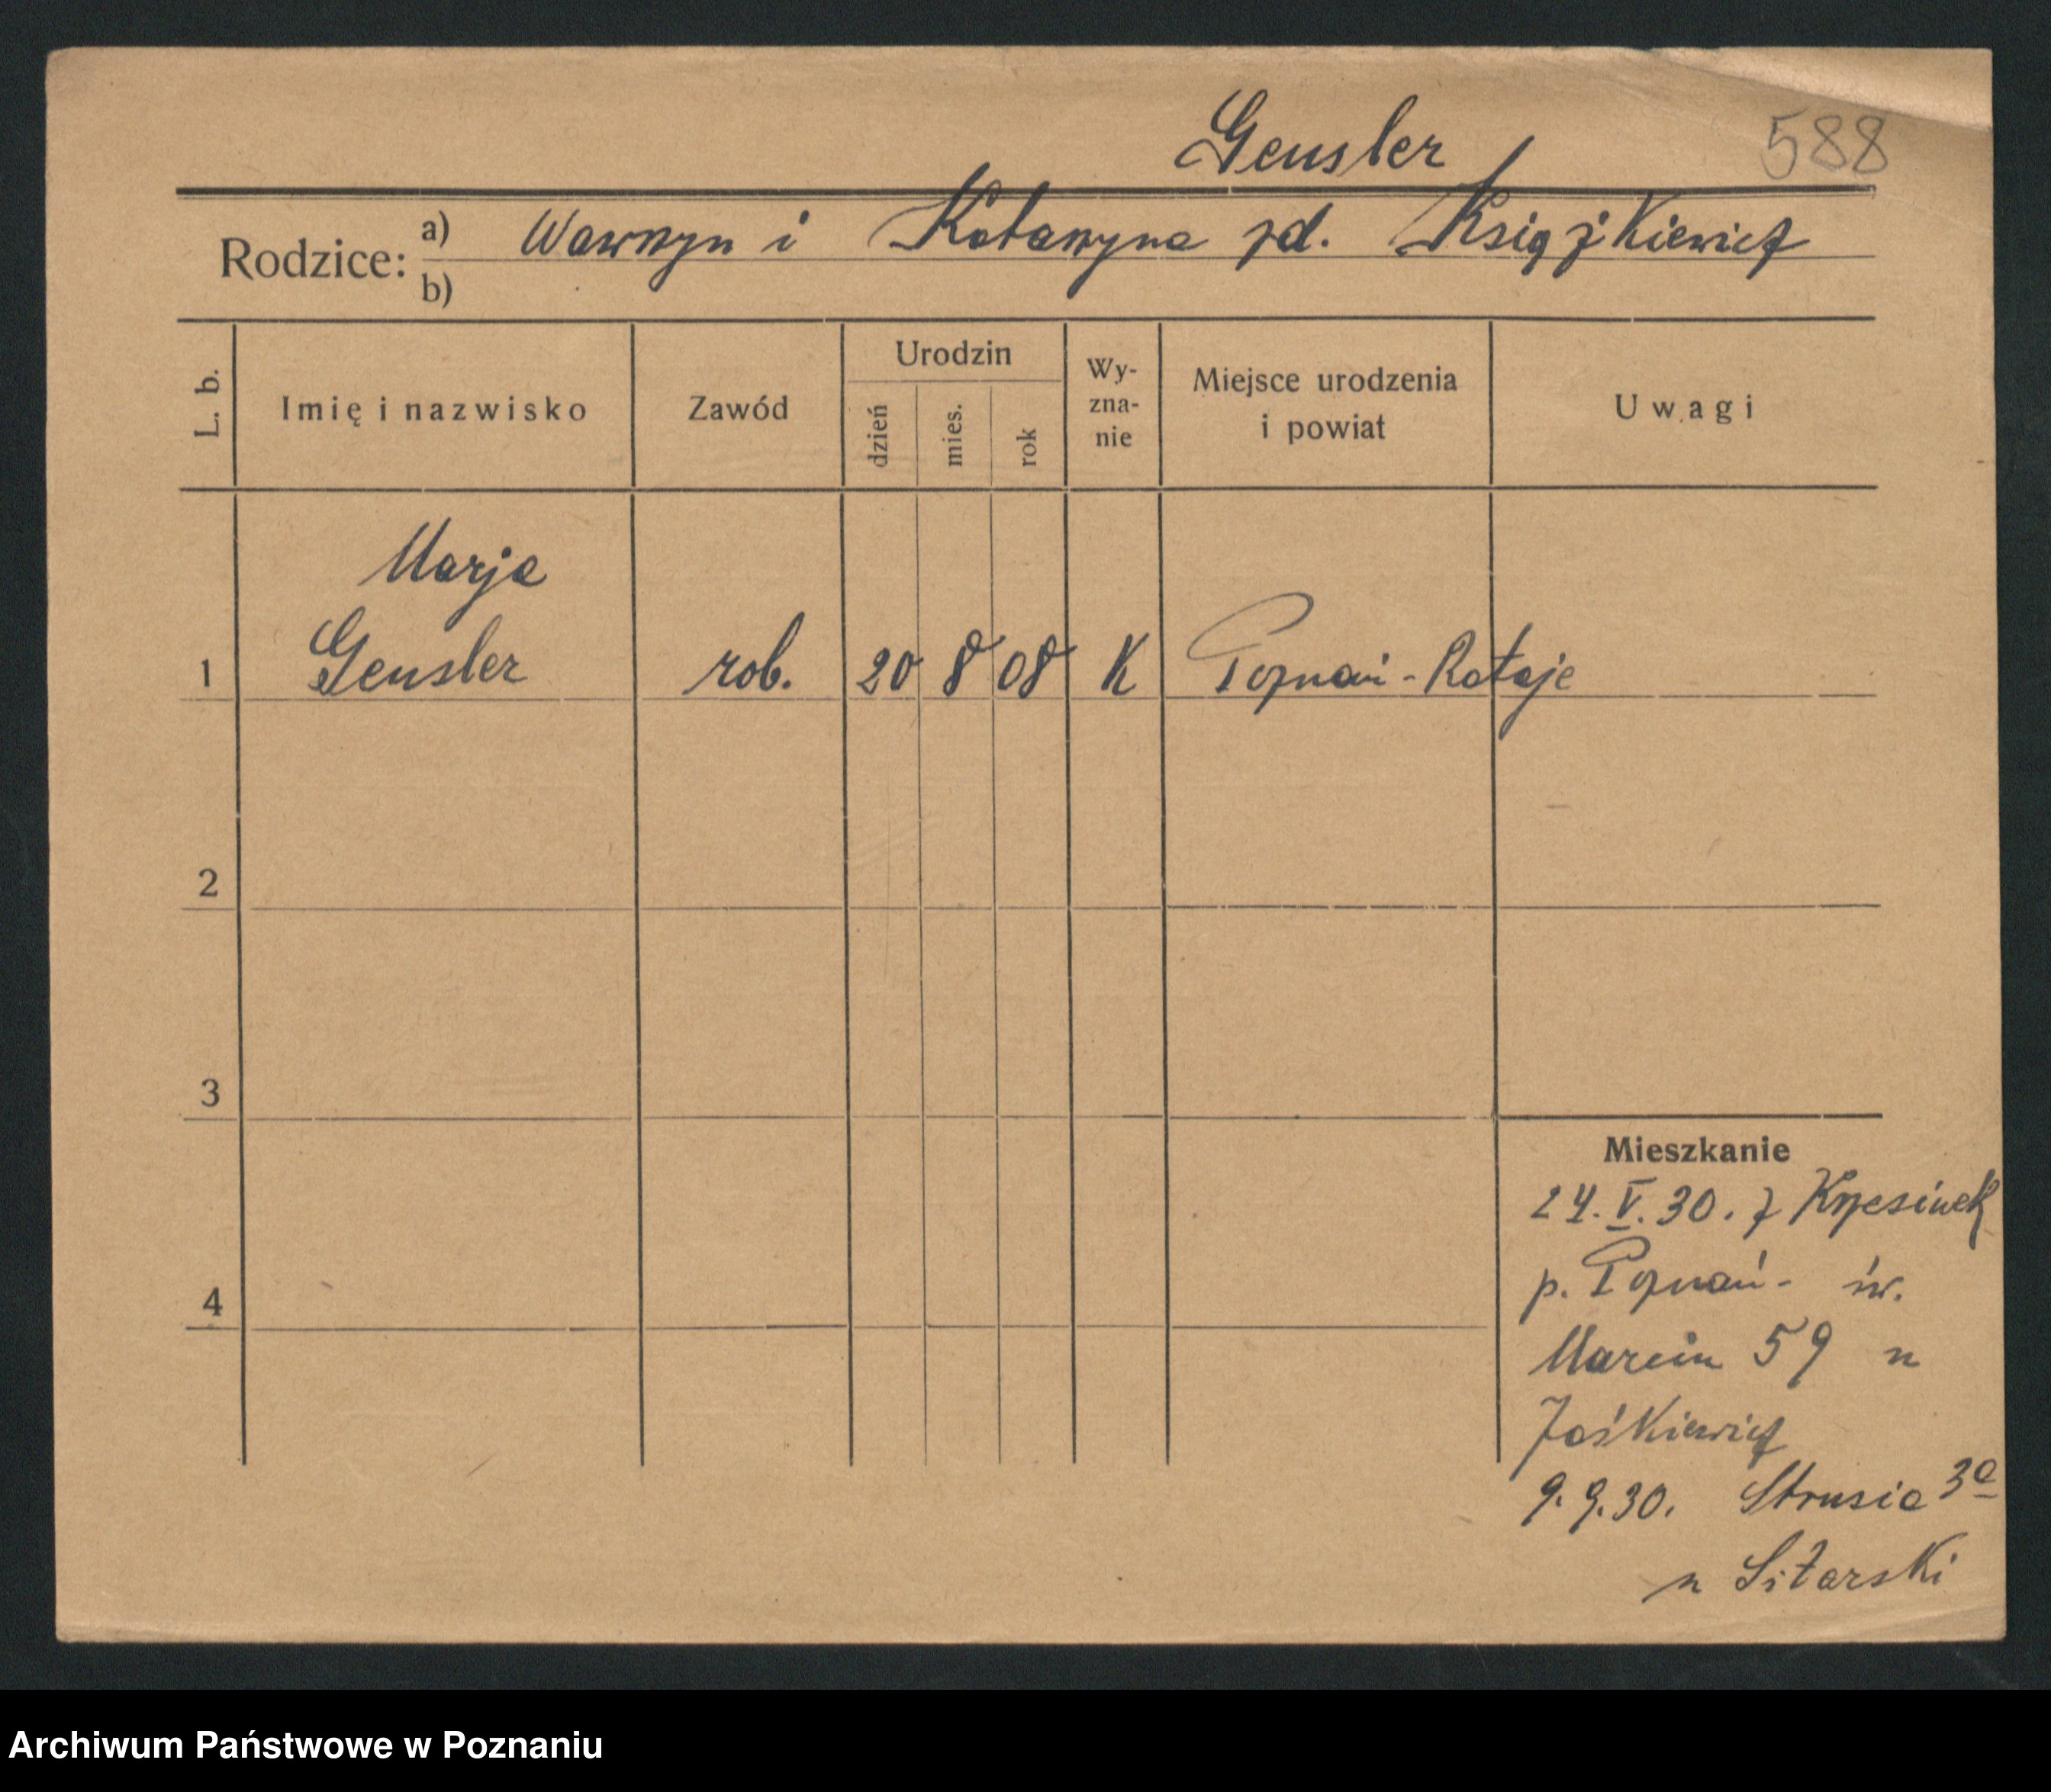 Gensler 588
Rodzice: a) Wawrzyn i Katarzyna zd. Książkiewicz
b)
L. b. Imię i nazwisko Zawód Urodzin dzień mies. rok Wy-zna-nie Miejsce urodzenia i powiat Uwagi
Marja
1 Gensler rob. 20 8 08 K Poznań-Rataje
2
3
Mieszkanie
24. V. 30. z Krzesinek
p. Poznań - św.
4
Marcin 59 u
Jaśkiewicz
9.9.30. Strusia 3a
u Sitarski
Archiwum Państwowe w Poznaniu